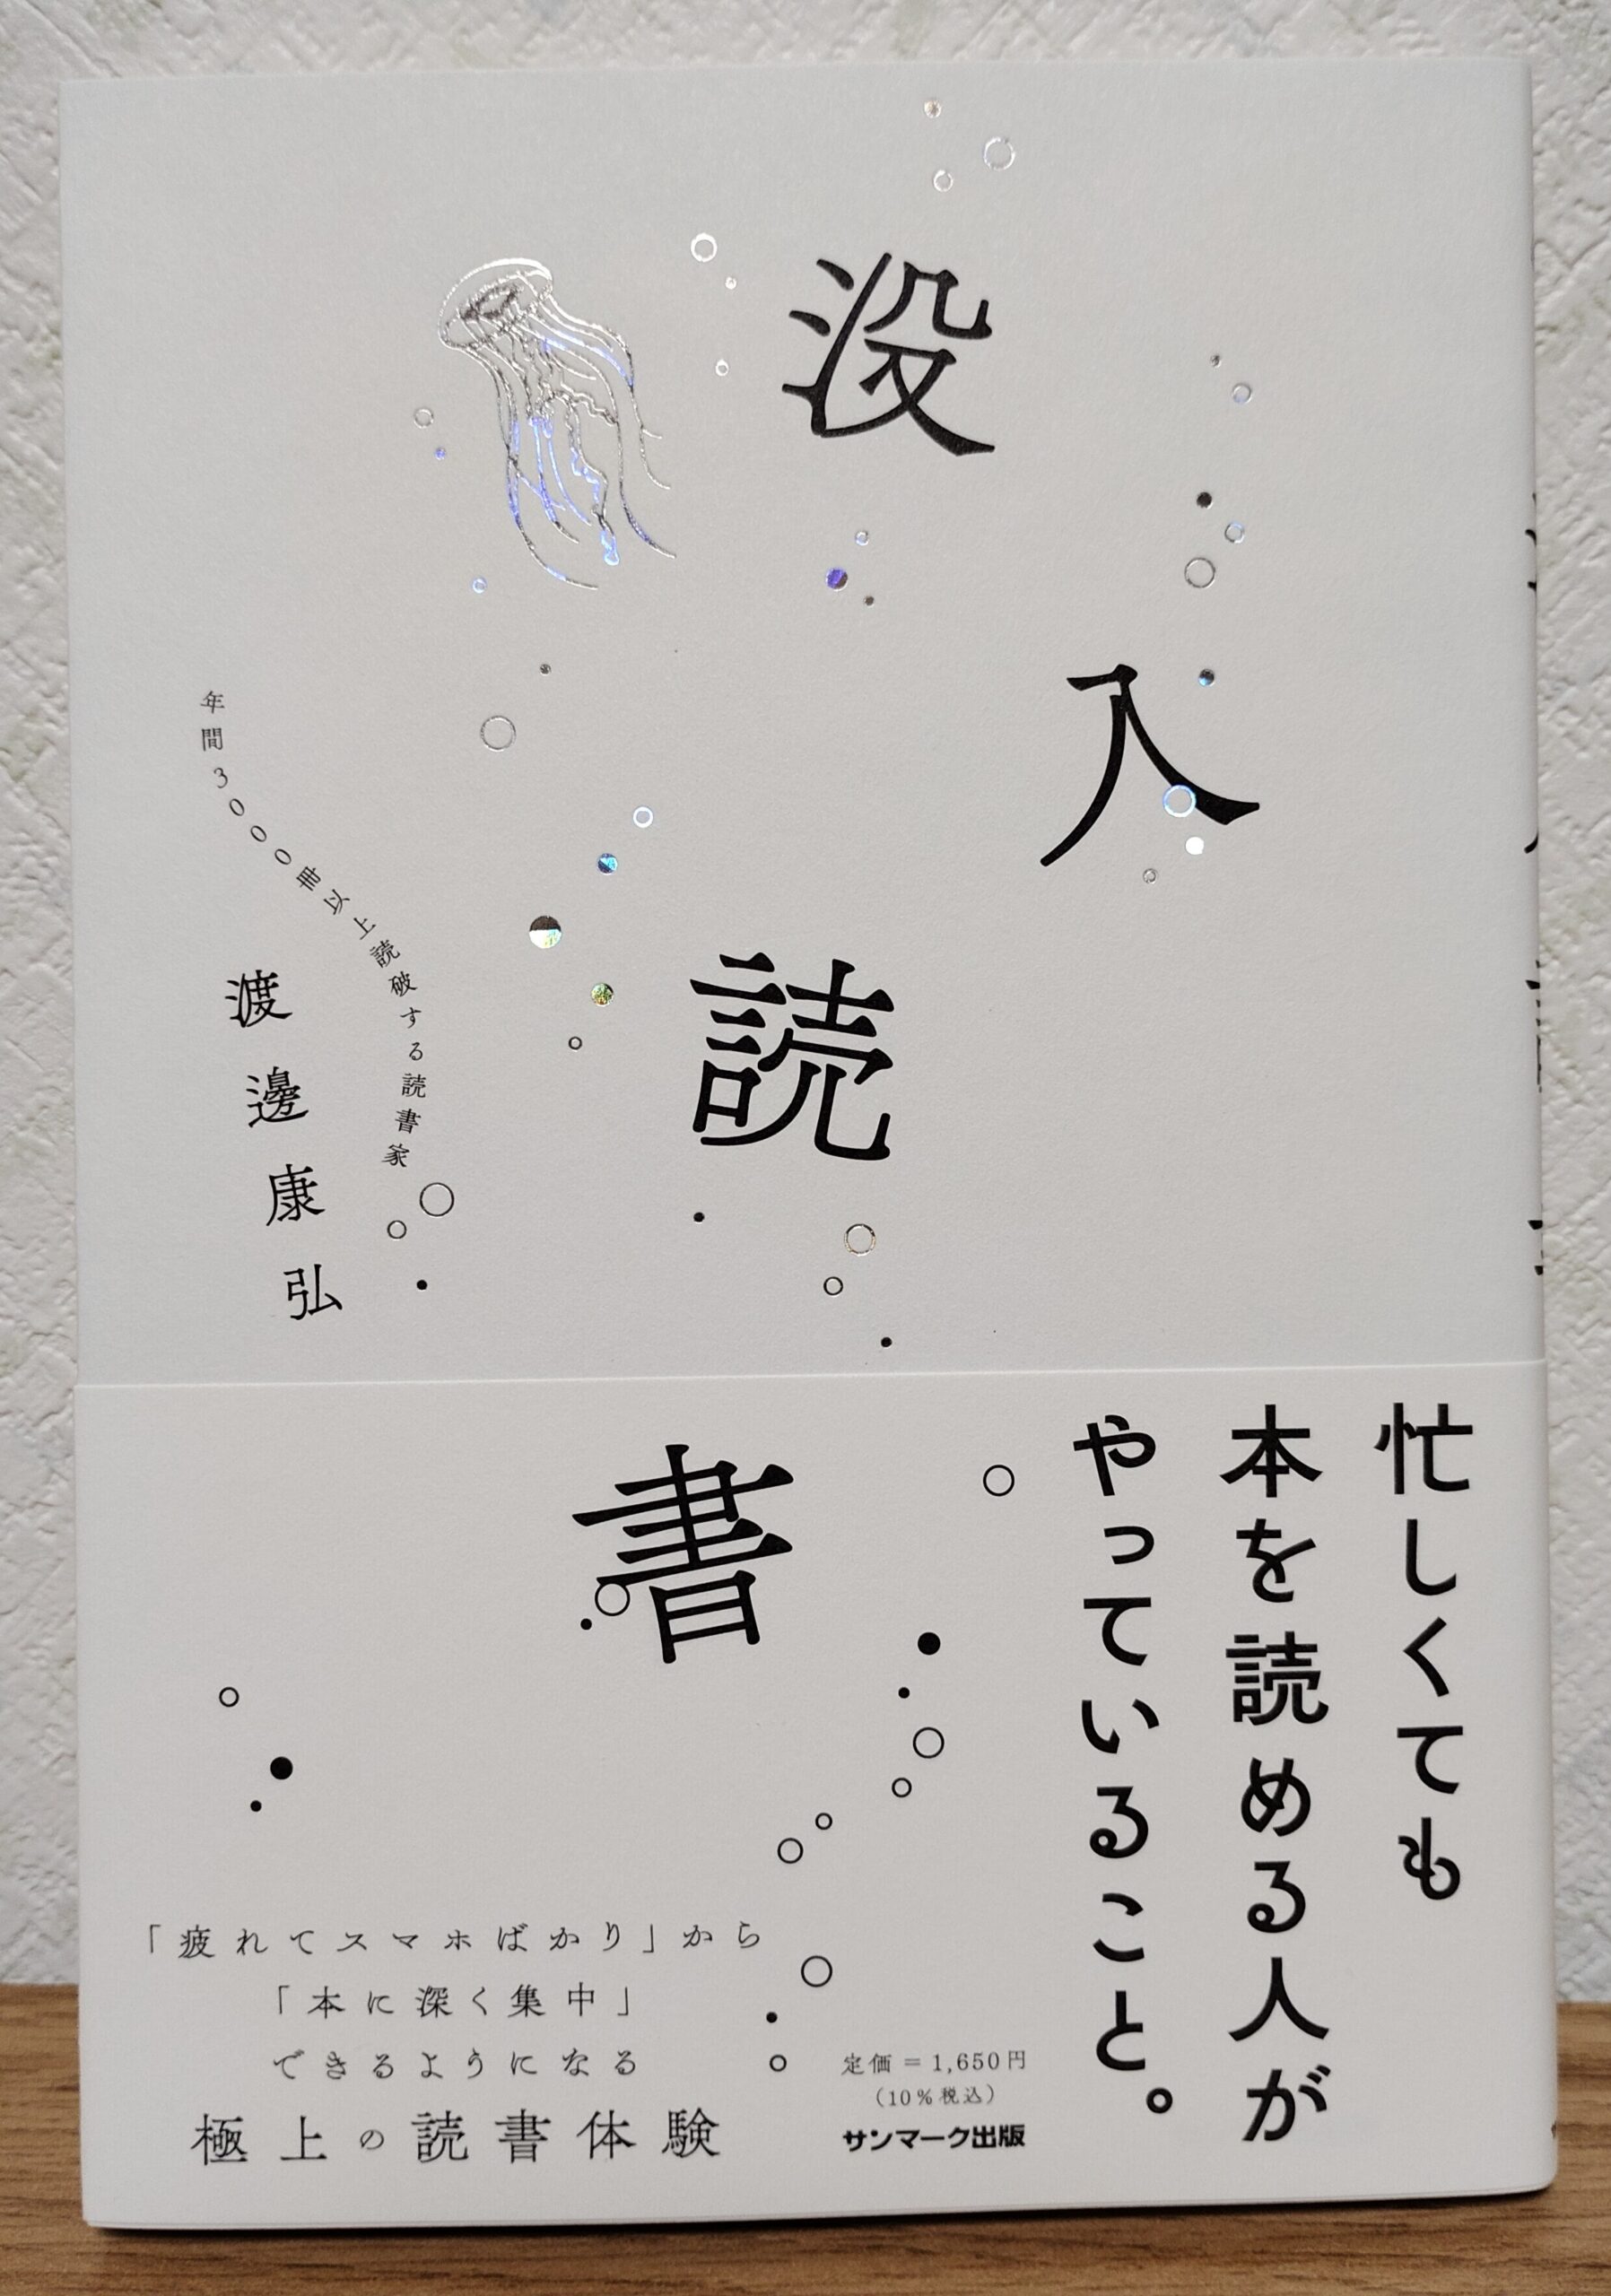 没入読書
年間3000冊以上読破する読書家
渡邊康弘
忙しくても
本を読める人が
やっていること。
「疲れてスマホばかり」から
「本に深く集中」
できるようになる
極上の読書体験
定価＝1,650円
（10％税込）
サンマーク出版